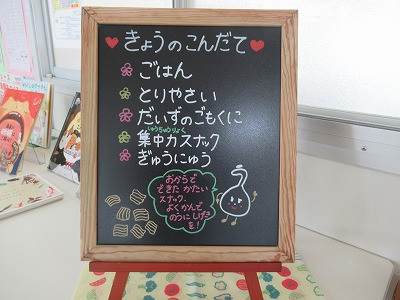 きょうのこんだて
ごはん
とりやさい
だいずのごもくに
しゅうちゅうりょく
集中力スナック
ぎゅうにゅう
おからで
できた かたい
スナック。
よくかんで
のうに しげき
を!